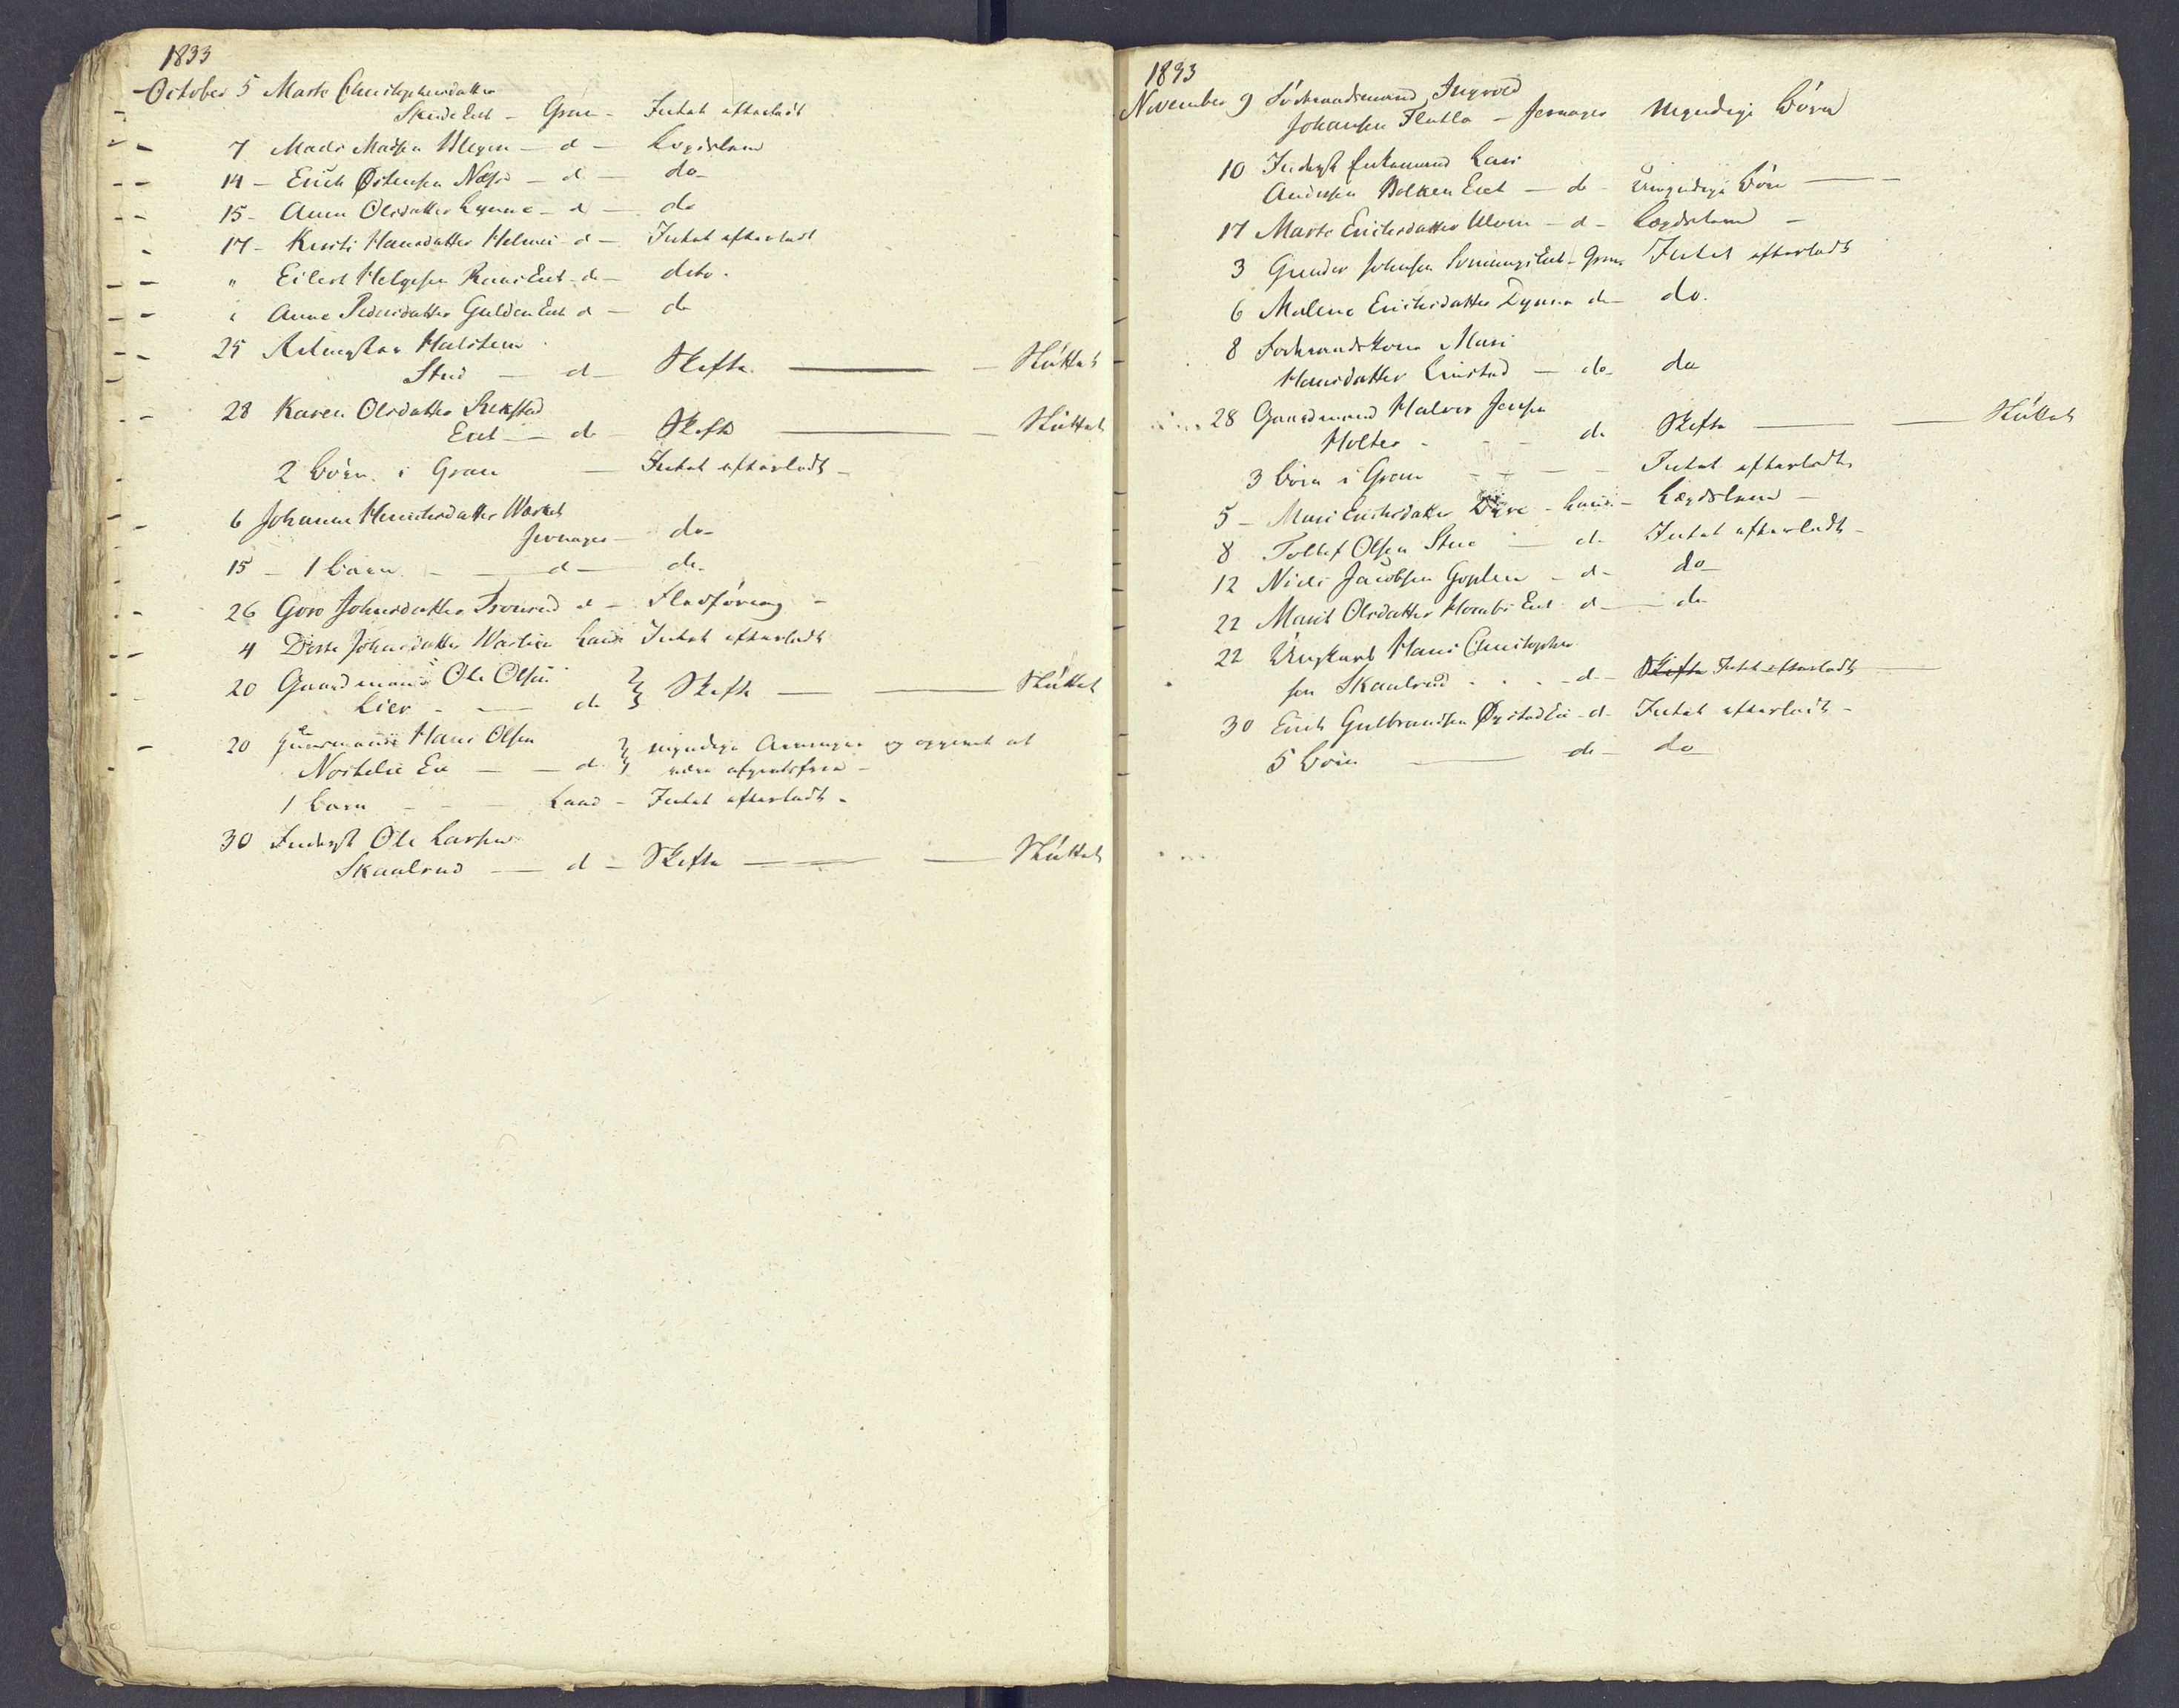 1833
October 5 Marte Christophersdatter
Skiede Eiet - Gran - Intet efterladt
7 Mads Madsen Blegen - d - Lægdslem
14 - Erich Østensen Næss - d - do
15 - Anne Olsdatter Lynne - d - do
17 - Kirsti Hansdatter Helmei - d - Intet efterladt
" Eilert Helgesen Eiet - d - dito.
Anne Pedersdatter Gulden Eiet d - do
25 Halsten
Stud - d - Skifte - Sluttet
28 Karen Olsdatter
Eiet - do - Skifte - Sluttet
2 Børn i Gran - Intet efterladt -
6 Johanne Henrichsdatter
Jevnager - do -
15 - 1 Barn - d - do -
26 Goro Johnsdatter d -
4 Johnsdatter Land Intet efterladt
20 Gaardmand Ole Olsen
Lier - do } Skifte - Sluttet
20 Huusmand Hans Olsen
Nordlie Eie - d } myndige Arvinger og opgivet at
være
1 Barn - Land - Intet efterladt -
30 Inderst Ole Larsen
Skaalrud - d - Skifte - Sluttet
1833
November 9 Føderaadsmand Ingvold
Johansen Flatla - Jevnager Myndige Børn
10 Inderst Enkemand Lars
Andersen Bolken Eiet - do - Umyndige Børn -
17 Marte Erichsdatter Ulven - d - Lægdslem -
3 Gunder Johnsen Eiet - Gran Intet efterladt
6 Malene Erichsdatter Dynna do - do.
8 Føderaadskone Mari
Hansdatter - do - do
28 Gaardmand Halvor Jensen
Holter - do Skifte - Sluttet
3 Børn i Gran - Intet efterladt
5 - Mari Erichsdatter - Land - Lægdslem -
8 Tollef Olsen Stue - d - Intet efterladt -
12 Niels Jacobsen Goplen - d - do
22 Marit Olsdatter Eiet d - do
22 Ungkarl Hans Christopher
sen Skaalrud - d - Skifte Intet efterladt
30 Erich Gulbrandsen Øystad Eie - d - Intet efterladt -
5 Børn - do - do